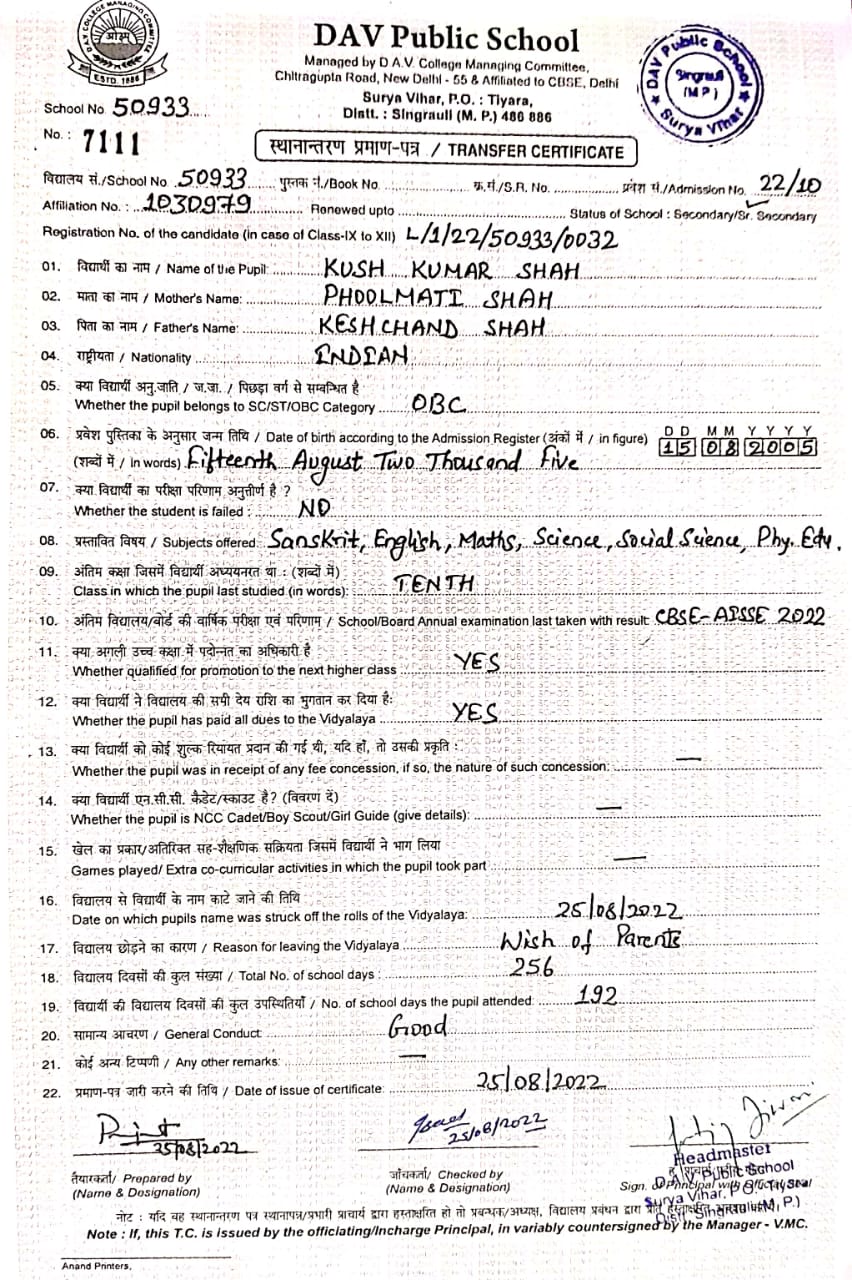 D.A.V. COLLEGE MANAGING COMMITTEE
ओ३म्
ESTD. 1886
DAV Public School
Managed by D A.V. College Managing Committee,
Chitragupta Road, New Delhi - 55 & Affiliated to CBSE, Delhi
Surya Vihar, P.O. : Tiyara,
Distt. : Singrauli (M. P.) 486 886
DAV Public School
Singrauli
(M P)
Surya Vihar
School No 50933
No. : 7111
स्थानान्तरण प्रमाण-पत्र / TRANSFER CERTIFICATE
विद्यालय सं./School No. 50933 पुस्तक नं./Book No. क्र.मं./S.R. No. प्रवेश सं./Admission No. 22/10
Affiliation No. : 1030979 Renewed upto Status of School : Secondary/Sr. Secondary
Registration No. of the candidate (in case of Class-IX to XII) L/1/22/50933/0032
01. विद्यार्थी का नाम / Name of the Pupil: KUSH KUMAR SHAH
02. माता का नाम / Mother's Name: PHOOLMATI SHAH
03. पिता का नाम / Father's Name: KESHCHAND SHAH
04. राष्ट्रीयता / Nationality INDIAN
05. क्या विद्यार्थी अनु.जाति / ज.जा. / पिछड़ा वर्ग से सम्बन्धित है
Whether the pupil belongs to SC/ST/OBC Category OBC
06. प्रवेश पुस्तिका के अनुसार जन्म तिथि / Date of birth according to the Admission Register (अंकों में / in figure) D D M M Y Y Y Y
15 08 2005
(शब्दों में / In words) Fifteenth August Two Thousand Five
07. क्या विद्यार्थी का परीक्षा परिणाम अनुत्तीर्ण है ?
Whether the student is failed : NO
08. प्रस्तावित विषय / Subjects offered: Sanskrit, English, Maths, Science, Social Science, Phy. Edu.
09. अंतिम कक्षा जिसमें विद्यार्थी अध्ययनरत था : (शब्दों में)
Class in which the pupil last studied (in words): TENTH
10. अंतिम विद्यालय/बोर्ड की वार्षिक परीक्षा एवं परिणाम / School/Board Annual examination last taken with result: CBSE-AISSE 2022
11. क्या अगली उच्च कक्षा में पदोन्नत का अधिकारी है
Whether qualified for promotion to the next higher class YES
12. क्या विद्यार्थी ने विद्यालय की सभी देय राशि का भुगतान कर दिया है:
Whether the pupil has paid all dues to the Vidyalaya YES
13. क्या विद्यार्थी को कोई शुल्क रियायत प्रदान की गई थी, यदि हाँ, तो उसकी प्रकृति :
Whether the pupil was in receipt of any fee concession, if so, the nature of such concession: —
14. क्या विद्यार्थी एन.सी.सी. कैडेट/स्काउट है? (विवरण दें)
Whether the pupil is NCC Cadet/Boy Scout/Girl Guide (give details): —
15. खेल का प्रकार/अतिरिक्त सह-शैक्षणिक सक्रियता जिसमें विद्यार्थी ने भाग लिया
Games played/ Extra co-curricular activities in which the pupil took part —
16. विद्यालय से विद्यार्थी के नाम काटे जाने की तिथि
Date on which pupils name was struck off the rolls of the Vidyalaya: 25/08/2022
17. विद्यालय छोड़ने का कारण / Reason for leaving the Vidyalaya Wish of Parents
18. विद्यालय दिवसों की कुल संख्या / Total No. of school days : 256
19. विद्यार्थी की विद्यालय दिवसों की कुल उपस्थितियाँ / No. of school days the pupil attended: 192
20. सामान्य आचरण / General Conduct: Good
21. कोई अन्य टिप्पणी / Any other remarks: —
22. प्रमाण-पत्र जारी करने की तिथि / Date of issue of certificate: 25/08/2022
25/08/2022
25/08/2022
तैयारकर्ता/ Prepared by
(Name & Designation)
जाँचकर्ता/ Checked by
(Name & Designation)
Headmaster
D.A.V. Public School
Sign. of Principal with Official Seal
Surya Vihar, P.O. Tiyara
Distt. Singrauli (M. P.)
नोट : यदि यह स्थानान्तरण पत्र स्थानापन्न/प्रभारी प्राचार्य द्वारा हस्ताक्षरित हो तो प्रबन्धक/अध्यक्ष, विद्यालय प्रबंधन द्वारा
Note : If, this T.C. is issued by the officiating/Incharge Principal, in variably countersigned by the Manager - V.MC.
Anand Printers,